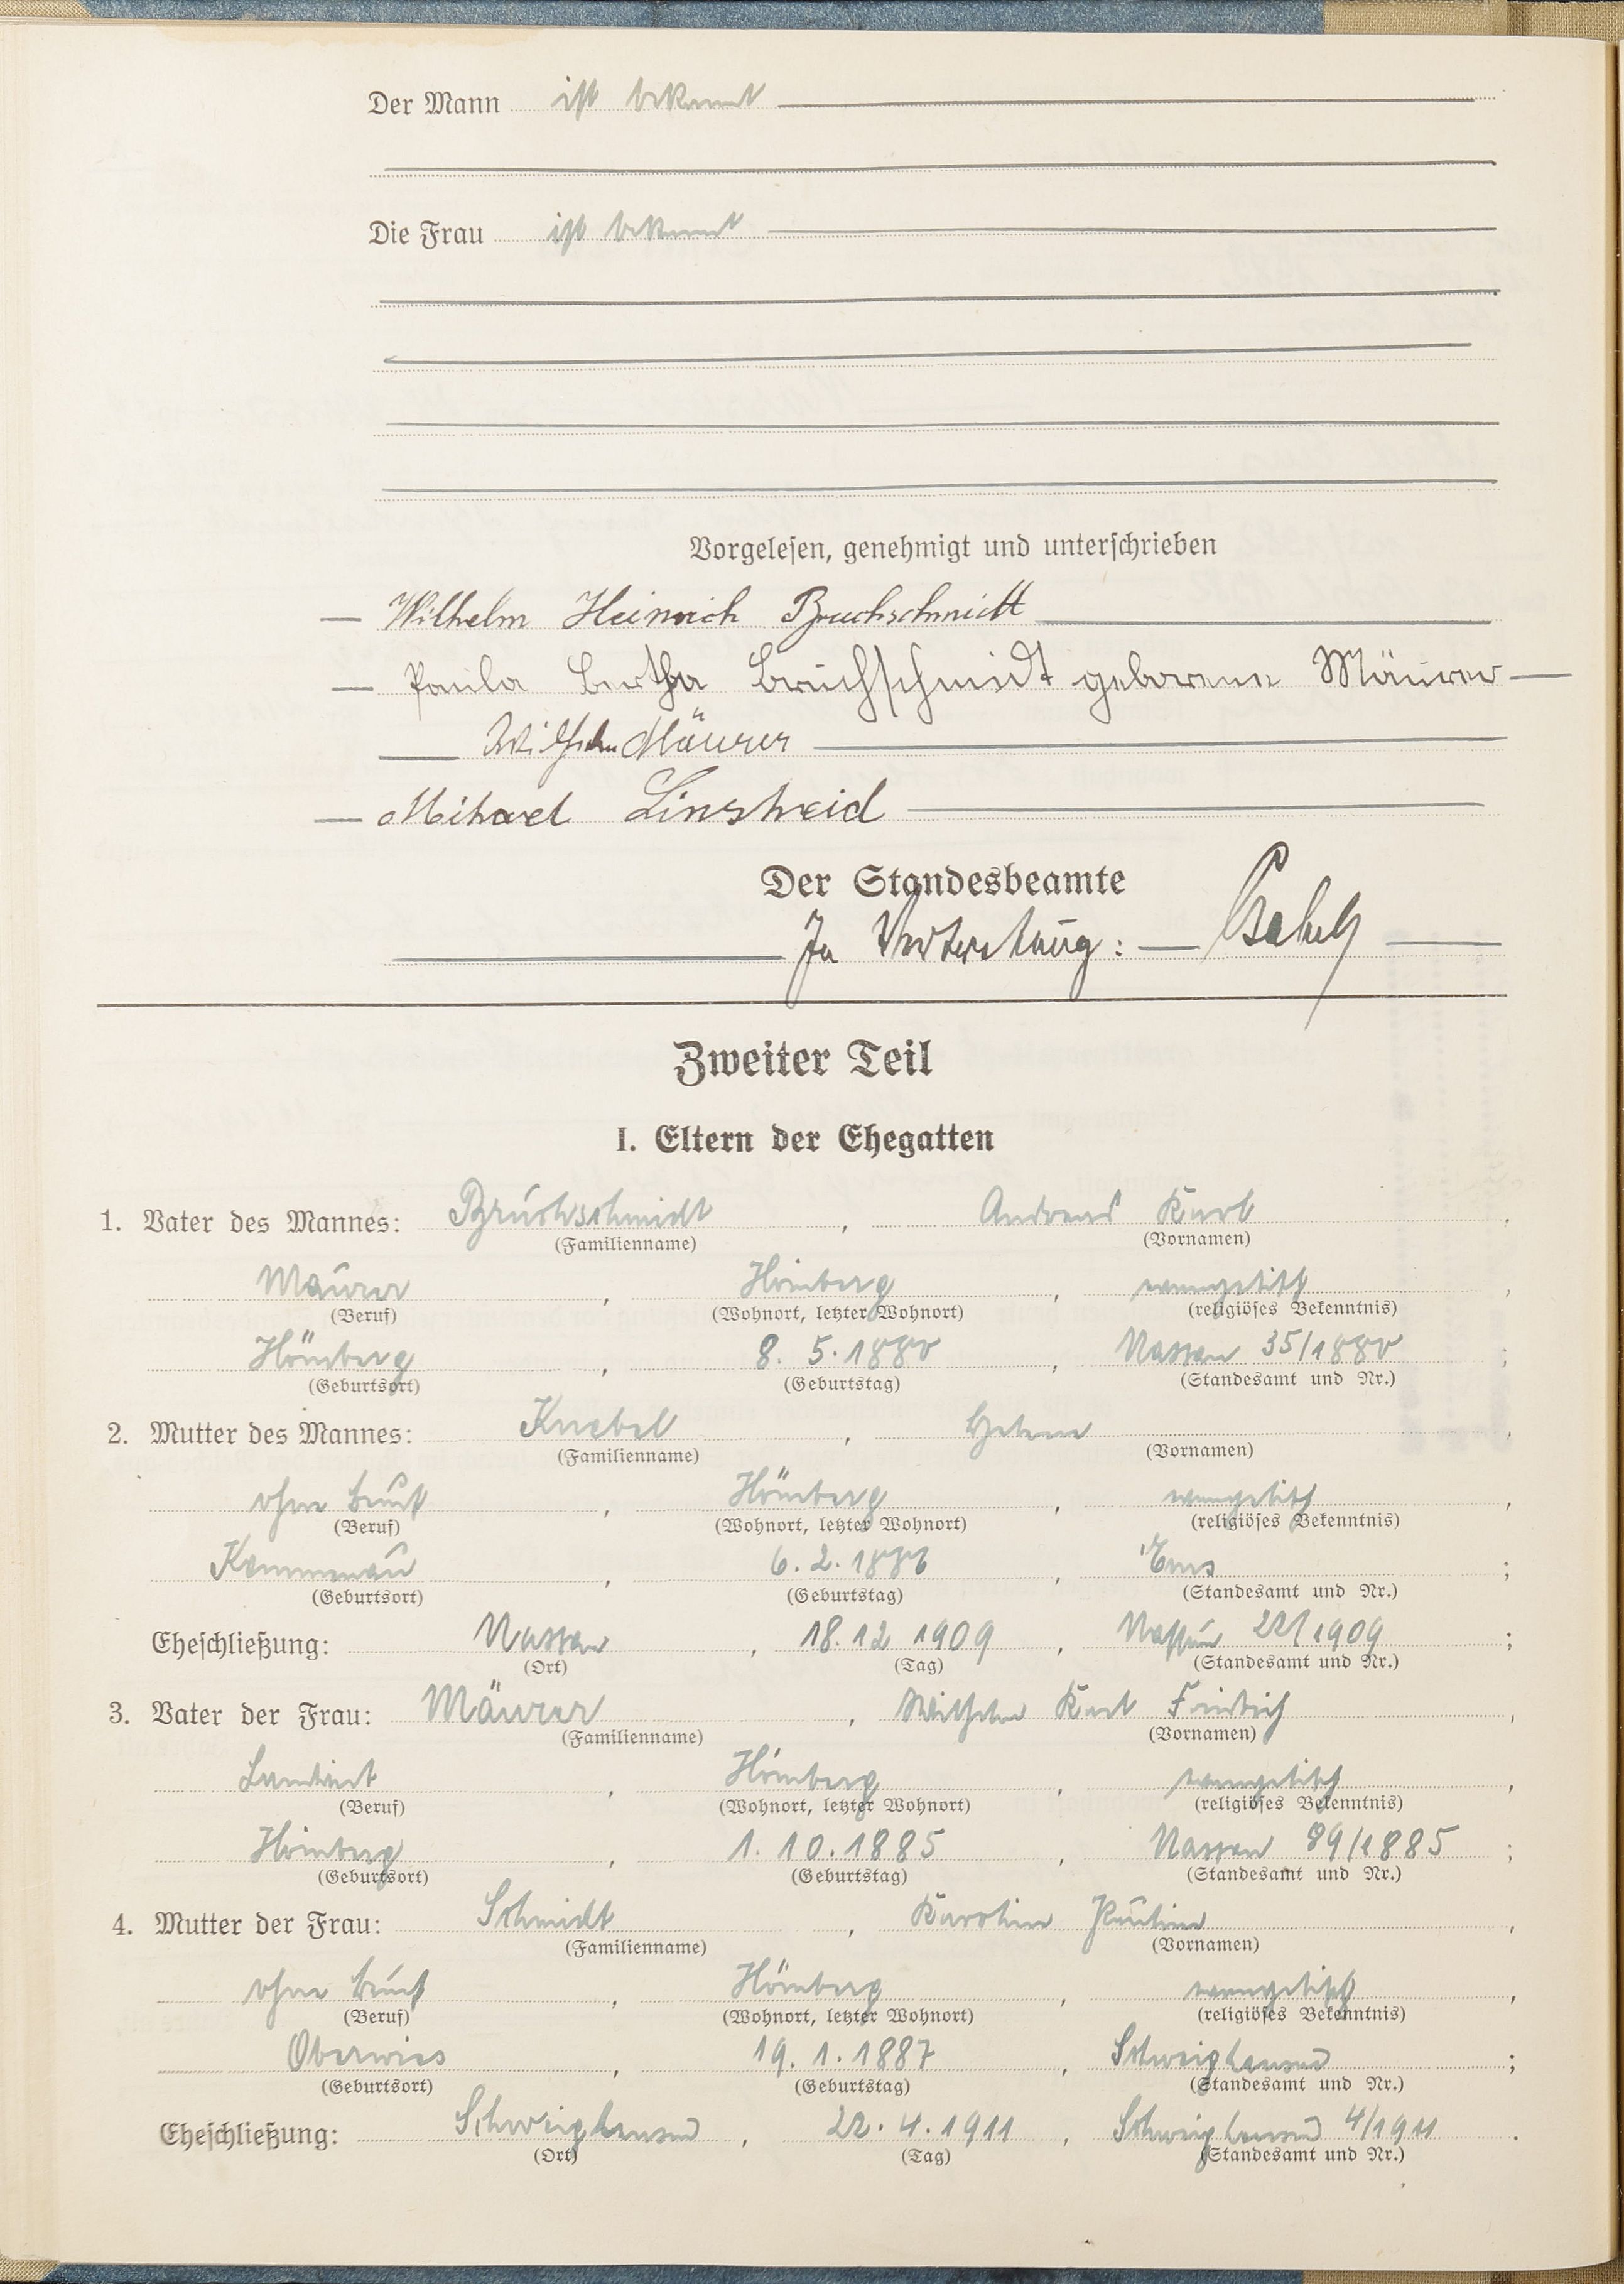 Der Mann ist bekannt
Die Frau ist bekannt
Vorgelesen, genehmigt und unterschrieben
Wilhelm Heinrich Bruchschmidt
Paula Bertha Bruchschmidt geborene Mäurer
Wilhelm Mäurer
Michael Linscheid
Der Standesbeamte
In Vertretung:
Zweiter Teil
I. Eltern der Ehegatten
1. Vater des Mannes: Bruchschmidt, Andreas Karl,
(Familienname) (Vornamen)
Maurer, Hömberg, evangelisch,
(Beruf) (Wohnort, letzter Wohnort) (religiöses Bekenntnis)
Hömberg, 8. 5. 1880, Nassau 35/1880;
(Geburtsort) (Geburtstag) (Standesamt und Nr.)
2. Mutter des Mannes: Knebel, Helene,
(Familienname) (Vornamen)
ohne Beruf, Hömberg, evangelisch,
(Beruf) (Wohnort, letzter Wohnort) (religiöses Bekenntnis)
Kemmenau, 6. 2. 1886, Ems;
(Geburtsort) (Geburtstag) (Standesamt und Nr.)
Eheschließung: Nassau, 18. 12 1909, Nassau 22/1909;
(Ort) (Tag) (Standesamt und Nr.)
3. Vater der Frau: Mäurer, Wilhelm Karl Friedrich,
(Familienname) (Vornamen)
Landwirt, Hömberg, evangelisch,
(Beruf) (Wohnort, letzter Wohnort) (religiöses Bekenntnis)
Hömberg, 1. 10. 1885, Nassau 89/1885;
(Geburtsort) (Geburtstag) (Standesamt und Nr.)
4. Mutter der Frau: Schmidt, Karoline Pauline,
(Familienname) (Vornamen)
ohne Beruf, Hömberg, evangelisch,
(Beruf) (Wohnort, letzter Wohnort) (religiöses Bekenntnis)
Oberwies, 19. 1. 1887, Schweighausen;
(Geburtsort) (Geburtstag) (Standesamt und Nr.)
Eheschließung: Schweighausen, 22. 4. 1911, Schweighausen 4/1911.
(Ort) (Tag) (Standesamt und Nr.)